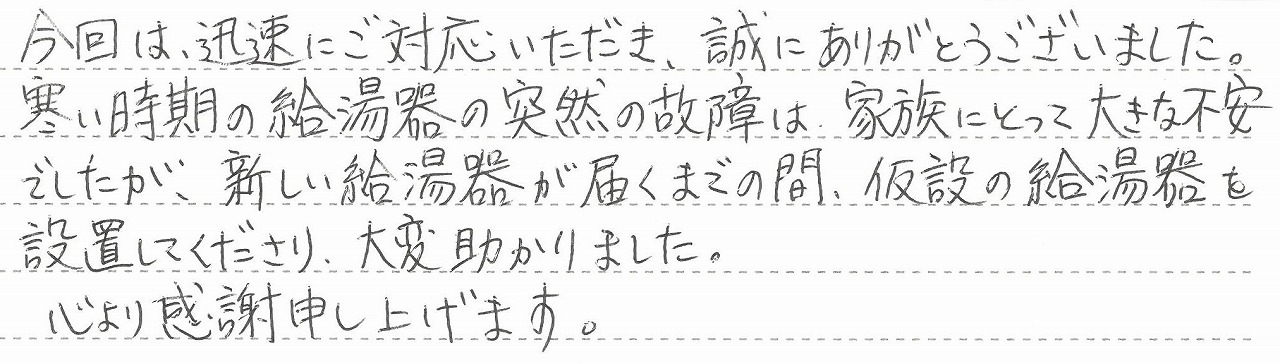 今回は、迅速にご対応いただき、誠にありがとうございました。
寒い時期の給湯器の突然の故障は、家族にとって大きな不安
でしたが、新しい給湯器が届くまでの間、仮設の給湯器を
設置してくださり、大変助かりました。
心より感謝申し上げます。